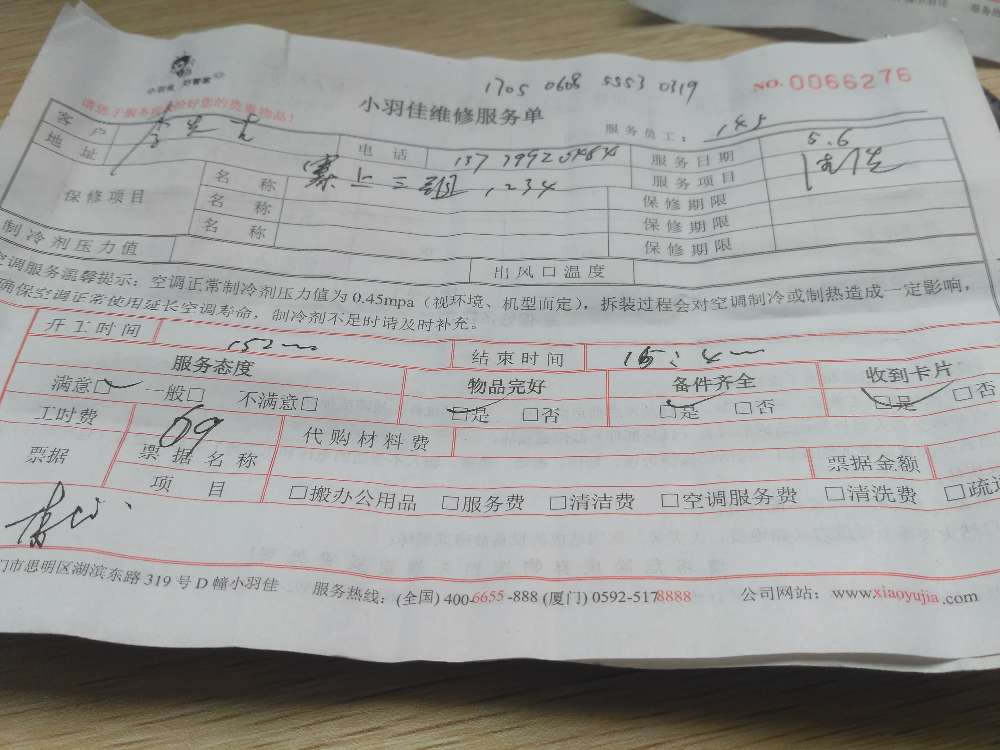 小羽佳 好管家
1705 0608 5553 0319
NO. 0066276
请您于服务前 好您的贵重物品！
小羽佳维修服务单
服务员工： 145
客户 电话 服务日期 5.6
地址 寨上三组，234 服务项目
保修项目 名称 保修期限
名称 保修期限
名称 保修期限
制冷剂压力值 出风口温度
空调服务温馨提示：空调正常制冷剂压力值为0.45mpa（视环境、机型而定），拆装过程会对空调制冷或制热造成一定影响，
确保空调正常使用延长空调寿命，制冷剂不足时请及时补充。
开工时间 结束时间
服务态度 物品完好 备件齐全 收到卡片
满意□ 一般□ 不满意□ □是 □否 □是 □否 □是 □否
工时费 69 代购材料费
票据 票据名称 票据金额
项目 □搬办公用品 □服务费 □清洁费 □空调服务费 □清洗费 □疏通
门市思明区湖滨东路319号D幢小羽佳 服务热线：(全国) 400-6655-888 (厦门) 0592-5178888 公司网站：www.xiaoyujia.com